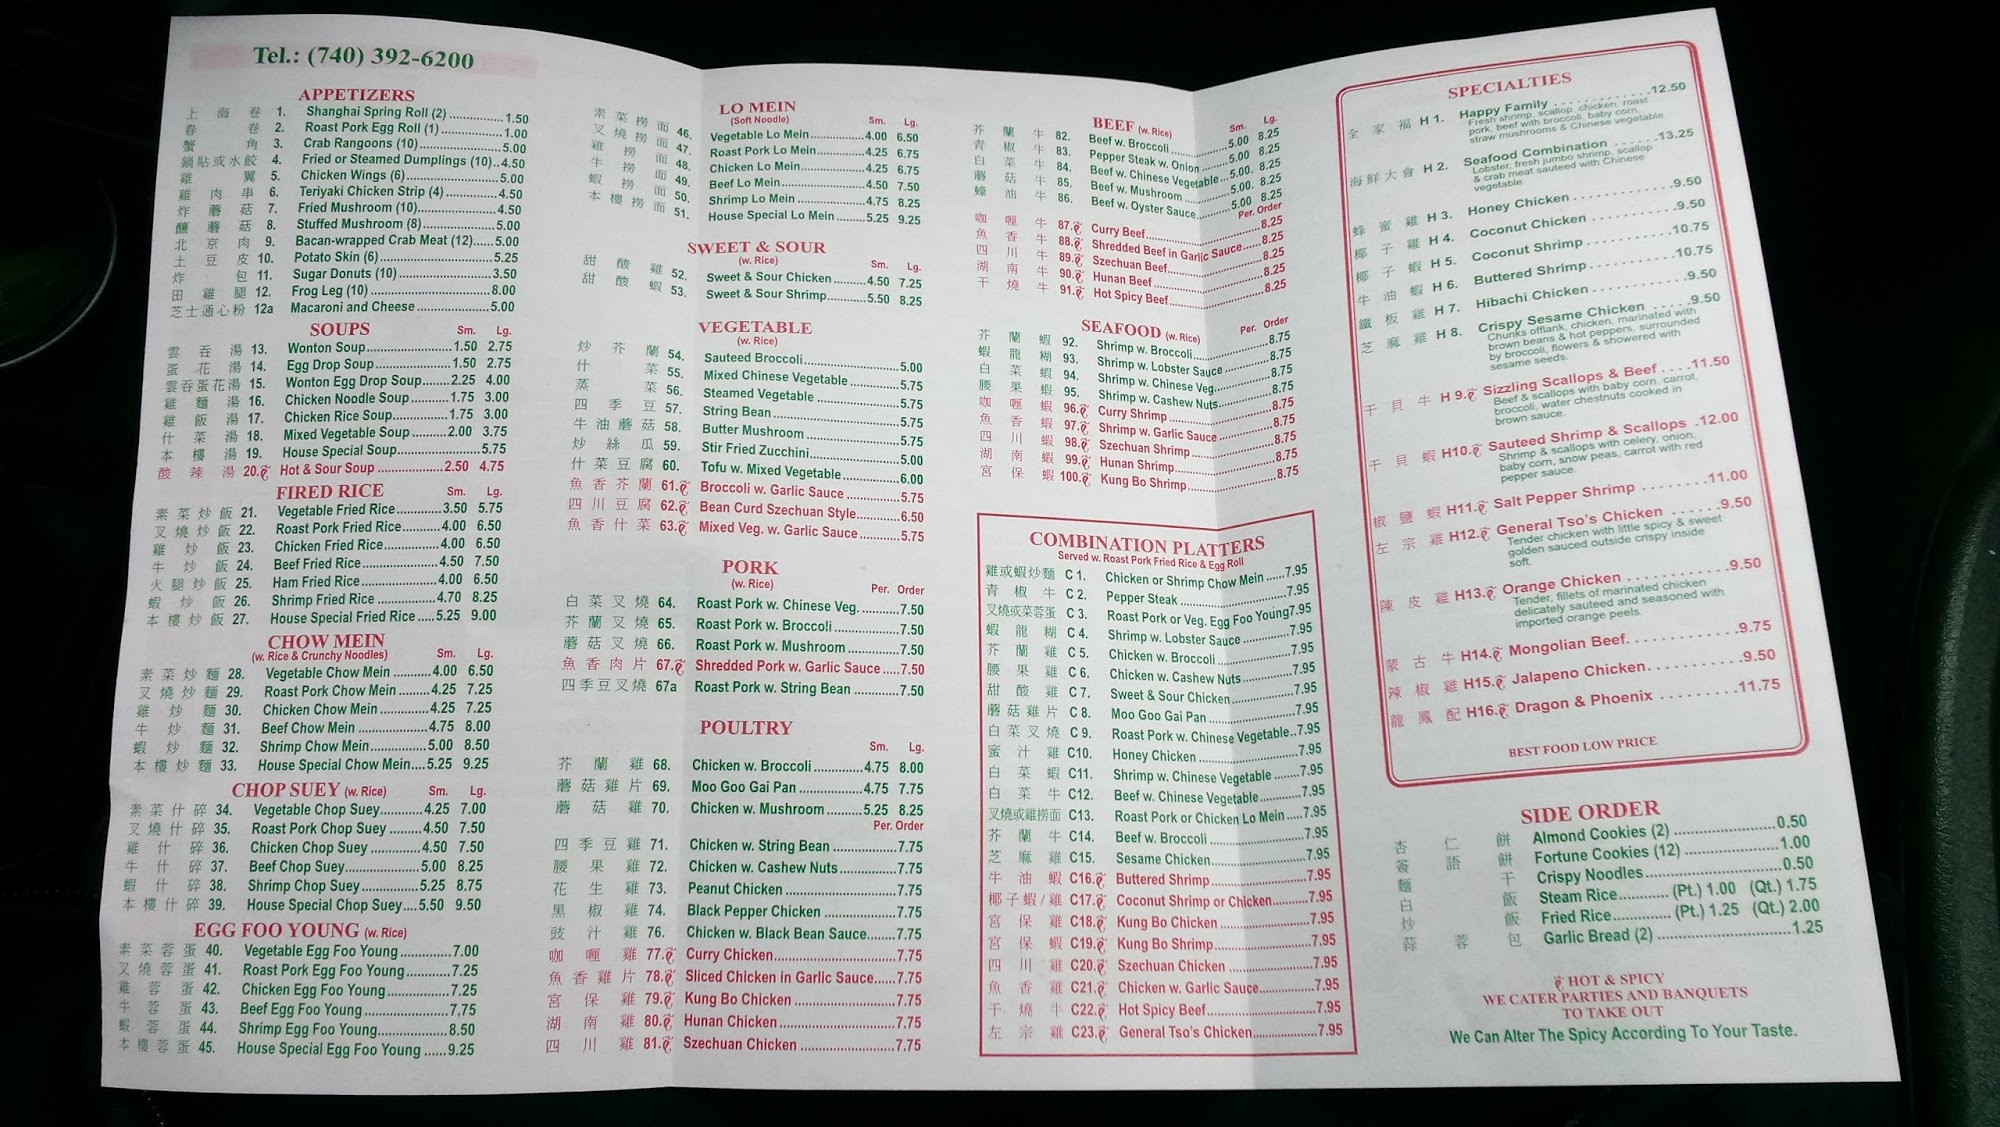 Tel.: (740) 392-6200
APPETIZERS
上海卷 1. Shanghai Spring Roll (2) 1.50
春卷 2. Roast Pork Egg Roll (1) 1.00
蟹角 3. Crab Rangoons (10) 5.00
鍋貼或水餃 4. Fried or Steamed Dumplings (10) 4.50
雞翼 5. Chicken Wings (6) 5.00
雞肉串 6. Teriyaki Chicken Strip (4) 4.50
炸蘑菇 7. Fried Mushroom (10) 4.50
釀蘑菇 8. Stuffed Mushroom (8) 5.00
北京肉 9. Bacan-wrapped Crab Meat (12) 5.00
土豆皮 10. Potato Skin (6) 5.25
炸包 11. Sugar Donuts (10) 3.50
田雞腿 12. Frog Leg (10) 8.00
芝士通心粉 12a Macaroni and Cheese 5.00
SOUPS Sm. Lg.
雲吞湯 13. Wonton Soup 1.50 2.75
蛋花湯 14. Egg Drop Soup 1.50 2.75
雲吞蛋花湯 15. Wonton Egg Drop Soup 2.25 4.00
雞麵湯 16. Chicken Noodle Soup 1.75 3.00
雞飯湯 17. Chicken Rice Soup 1.75 3.00
什菜湯 18. Mixed Vegetable Soup 2.00 3.75
本樓湯 19. House Special Soup 5.75
酸辣湯 20. Hot & Sour Soup 2.50 4.75
FIRED RICE Sm. Lg.
素菜炒飯 21. Vegetable Fried Rice 3.50 5.75
叉燒炒飯 22. Roast Pork Fried Rice 4.00 6.50
雞炒飯 23. Chicken Fried Rice 4.00 6.50
牛炒飯 24. Beef Fried Rice 4.50 7.50
火腿炒飯 25. Ham Fried Rice 4.00 6.50
蝦炒飯 26. Shrimp Fried Rice 4.70 8.25
本樓炒飯 27. House Special Fried Rice 5.25 9.00
CHOW MEIN
(w. Rice & Crunchy Noodles) Sm. Lg.
素菜炒麵 28. Vegetable Chow Mein 4.00 6.50
叉燒炒麵 29. Roast Pork Chow Mein 4.25 7.25
雞炒麵 30. Chicken Chow Mein 4.25 7.25
牛炒麵 31. Beef Chow Mein 4.75 8.00
蝦炒麵 32. Shrimp Chow Mein 5.00 8.50
本樓炒麵 33. House Special Chow Mein 5.25 9.25
CHOP SUEY (w. Rice) Sm. Lg.
素菜什碎 34. Vegetable Chop Suey 4.25 7.00
叉燒什碎 35. Roast Pork Chop Suey 4.50 7.50
雞什碎 36. Chicken Chop Suey 4.50 7.50
牛什碎 37. Beef Chop Suey 5.00 8.25
蝦什碎 38. Shrimp Chop Suey 5.25 8.75
本樓什碎 39. House Special Chop Suey 5.50 9.50
EGG FOO YOUNG (w. Rice)
素菜蓉蛋 40. Vegetable Egg Foo Young 7.00
叉燒蓉蛋 41. Roast Pork Egg Foo Young 7.25
雞蓉蛋 42. Chicken Egg Foo Young 7.25
牛蓉蛋 43. Beef Egg Foo Young 7.75
蝦蓉蛋 44. Shrimp Egg Foo Young 8.50
本樓蓉蛋 45. House Special Egg Foo Young 9.25
LO MEIN
(Soft Noodle) Sm. Lg.
素菜撈面 46. Vegetable Lo Mein 4.00 6.50
叉燒撈面 47. Roast Pork Lo Mein 4.25 6.75
雞撈面 48. Chicken Lo Mein 4.25 6.75
牛撈面 49. Beef Lo Mein 4.50 7.50
蝦撈面 50. Shrimp Lo Mein 4.75 8.25
本樓撈面 51. House Special Lo Mein 5.25 9.25
SWEET & SOUR
(w. Rice) Sm. Lg.
甜酸雞 52. Sweet & Sour Chicken 4.50 7.25
甜酸蝦 53. Sweet & Sour Shrimp 5.50 8.25
VEGETABLE
(w. Rice)
炒芥蘭 54. Sauteed Broccoli 5.00
什菜 55. Mixed Chinese Vegetable 5.75
蒸菜 56. Steamed Vegetable 5.75
四季豆 57. String Bean 5.75
牛油蘑菇 58. Butter Mushroom 5.75
炒絲瓜 59. Stir Fried Zucchini 5.00
什菜豆腐 60. Tofu w. Mixed Vegetable 6.00
魚香芥蘭 61. Broccoli w. Garlic Sauce 5.75
四川豆腐 62. Bean Curd Szechuan Style 6.50
魚香什菜 63. Mixed Veg. w. Garlic Sauce 5.75
PORK
(w. Rice) Per. Order
白菜叉燒 64. Roast Pork w. Chinese Veg. 7.50
芥蘭叉燒 65. Roast Pork w. Broccoli 7.50
蘑菇叉燒 66. Roast Pork w. Mushroom 7.50
魚香肉片 67. Shredded Pork w. Garlic Sauce 7.50
四季豆叉燒 67a Roast Pork w. String Bean 7.50
POULTRY
Sm. Lg.
芥蘭雞 68. Chicken w. Broccoli 4.75 8.00
蘑菇雞片 69. Moo Goo Gai Pan 4.75 7.75
蘑菇雞 70. Chicken w. Mushroom 5.25 8.25
Per. Order
四季豆雞 71. Chicken w. String Bean 7.75
腰果雞 72. Chicken w. Cashew Nuts 7.75
花生雞 73. Peanut Chicken 7.75
黑椒雞 74. Black Pepper Chicken 7.75
豉汁雞 76. Chicken w. Black Bean Sauce 7.75
咖喱雞 77. Curry Chicken 7.75
魚香雞片 78. Sliced Chicken in Garlic Sauce 7.75
宮保雞 79. Kung Bo Chicken 7.75
湖南雞 80. Hunan Chicken 7.75
四川雞 81. Szechuan Chicken 7.75
BEEF (w. Rice) Sm. Lg.
芥蘭牛 82. Beef w. Broccoli 5.00 8.25
青椒牛 83. Pepper Steak w. Onion 5.00 8.25
白菜牛 84. Beef w. Chinese Vegetable 5.00. 8.25
蘑菇牛 85. Beef w. Mushroom 5.00. 8.25
蠔油牛 86. Beef w. Oyster Sauce 5.00 8.25
Per. Order
咖喱牛 87. Curry Beef 8.25
魚香牛 88. Shredded Beef in Garlic Sauce 8.25
四川牛 89. Szechuan Beef 8.25
湖南牛 90. Hunan Beef 8.25
干燒牛 91. Hot Spicy Beef 8.25
SEAFOOD (w. Rice) Per. Order
芥蘭蝦 92. Shrimp w. Broccoli 8.75
蝦龍糊 93. Shrimp w. Lobster Sauce 8.75
白菜蝦 94. Shrimp w. Chinese Veg. 8.75
腰果蝦 95. Shrimp w. Cashew Nuts 8.75
咖喱蝦 96. Curry Shrimp 8.75
魚香蝦 97. Shrimp w. Garlic Sauce 8.75
四川蝦 98. Szechuan Shrimp 8.75
湖南蝦 99. Hunan Shrimp 8.75
宮保蝦 100. Kung Bo Shrimp 8.75
COMBINATION PLATTERS
Served w. Roast Pork Fried Rice & Egg Roll
雞或蝦炒麵 C 1. Chicken or Shrimp Chow Mein 7.95
青椒牛 C 2. Pepper Steak 7.95
叉燒或菜蓉蛋 C 3. Roast Pork or Veg. Egg Foo Young 7.95
蝦龍糊 C 4. Shrimp w. Lobster Sauce 7.95
芥蘭雞 C 5. Chicken w. Broccoli 7.95
腰果雞 C 6. Chicken w. Cashew Nuts 7.95
甜酸雞 C 7. Sweet & Sour Chicken 7.95
蘑菇雞片 C 8. Moo Goo Gai Pan 7.95
白菜叉燒 C 9. Roast Pork w. Chinese Vegetable 7.95
蜜汁雞 C10. Honey Chicken 7.95
白菜蝦 C11. Shrimp w. Chinese Vegetable 7.95
白菜牛 C12. Beef w. Chinese Vegetable 7.95
叉燒或雞撈面 C13. Roast Pork or Chicken Lo Mein 7.95
芥蘭牛 C14. Beef w. Broccoli 7.95
芝麻雞 C15. Sesame Chicken 7.95
牛油蝦 C16. Buttered Shrimp 7.95
椰子蝦/雞 C17. Coconut Shrimp or Chicken 7.95
宮保雞 C18. Kung Bo Chicken 7.95
宮保蝦 C19. Kung Bo Shrimp 7.95
四川雞 C20. Szechuan Chicken 7.95
魚香雞 C21. Chicken w. Garlic Sauce 7.95
干燒牛 C22. Hot Spicy Beef 7.95
左宗雞 C23. General Tso's Chicken 7.95
SPECIALTIES
全家福 H 1. Happy Family 12.50
Fresh shrimp, scallop, chicken, roast
pork, beef with broccoli, baby corn,
straw mushrooms & Chinese vegetable.
海鮮大會 H 2. Seafood Combination 13.25
Lobster, fresh jumbo shrimp, scallop
& crab meat sauteed with Chinese
vegetable.
蜂蜜雞 H 3. Honey Chicken 9.50
椰子雞 H 4. Coconut Chicken 9.50
椰子蝦 H 5. Coconut Shrimp 10.75
牛油蝦 H 6. Buttered Shrimp 10.75
鐵板雞 H 7. Hibachi Chicken 9.50
芝麻雞 H 8. Crispy Sesame Chicken 9.50
Chunks offlank, chicken, marinated with
brown beans & hot peppers, surrounded
by broccoli, flowers & showered with
sesame seeds.
干貝牛 H 9. Sizzling Scallops & Beef 11.50
Beef & scallops with baby corn, carrot,
broccoli, water chestnuts cooked in
brown sauce.
干貝蝦 H10. Sauteed Shrimp & Scallops 12.00
Shrimp & scallops with celery, onion,
baby corn, snow peas, carrot with red
pepper sauce.
椒鹽蝦 H11. Salt Pepper Shrimp 11.00
左宗雞 H12. General Tso's Chicken 9.50
Tender chicken with little spicy & sweet
golden sauced outside crispy inside
soft.
陳皮雞 H13. Orange Chicken 9.50
Tender, fillets of marinated chicken
delicately sauteed and seasoned with
imported orange peels.
蒙古牛 H14. Mongolian Beef 9.75
辣椒雞 H15. Jalapeno Chicken 9.50
龍鳳配 H16. Dragon & Phoenix 11.75
BEST FOOD LOW PRICE
SIDE ORDER
杏仁餅 Almond Cookies (2) 0.50
簽語餅 Fortune Cookies (12) 1.00
麵干 Crispy Noodles 0.50
白飯 Steam Rice (Pt.) 1.00 (Qt.) 1.75
炒飯 Fried Rice (Pt.) 1.25 (Qt.) 2.00
蒜蓉包 Garlic Bread (2) 1.25
HOT & SPICY
WE CATER PARTIES AND BANQUETS
TO TAKE OUT
We Can Alter The Spicy According To Your Taste.